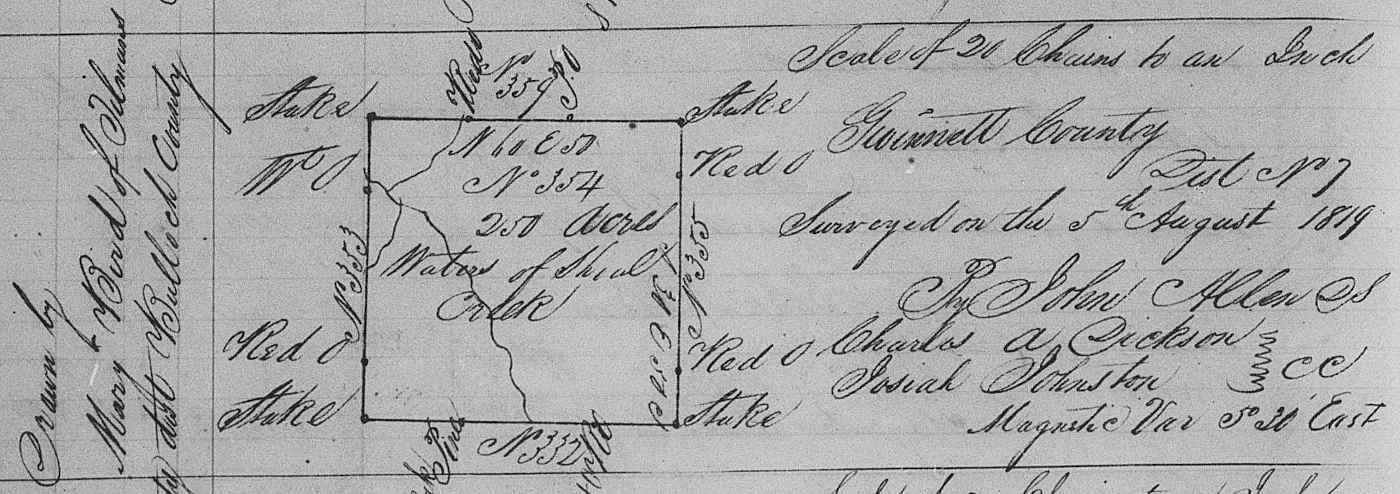 Drawn by
Mary Bird of Tilmans
dist Bulloch County
Scale of 20 Chains to an Inch
Gwinnett County
Dist No 7
Surveyed on the 5th August 1819
By John Allen DS
Charles A Dickson
Josiah Johnston
CC
Magnetic Var 5° 30 East
Stake
No 359
P O
Stake
Wt O
N 60 E 50
Red O
No 354
250 Acres
No 353
Waters of Shoal
Creek
No 355
Red O
Red O
Stake
Pine
No 332
Stake